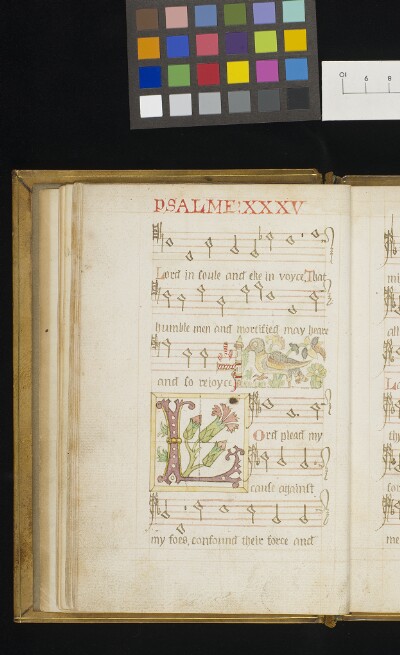 PSALME: XXXV
Lord in soule and eke in voyce, That
humble men and mortified may heare
and so rejoyce
L
Ord plead my
cause against
my foes, confound their force and